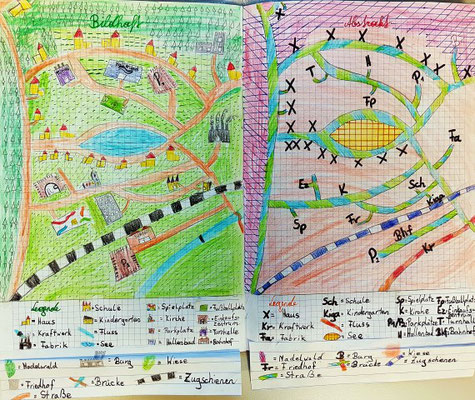 Bildhaft
P₁
P₂
Legende
Schule
Haus
Kindergarten
Kraftwerk
Fluss
Fabrik
See
Spielplatz
Kirche
Parkplatz
Hallenbad
Turnhalle
Bahnhof
Nadelwald
Burg
Wiese
Friedhof
Brücke
Zugschienen
Straße
Abstrakt
X X X X X X
T
H
P₁
Fp
Fa
Ez
K
Sch
Kiga
Sp
Fr
Bhf
P₂
Kr
Legende
X = Haus
Kr = Kraftwerk
Fa = Fabrik
Sch = Schule
Kiga = Kindergarten
= Fluss
= See
Sp = Spielplatz
K = Kirche
P₁/P₂ Parkplätze
H = Hallenbad
Fp = Fußballplatz
Ez = Einkaufszentrum
T = Turnhalle
Bhf = Bahnhof
= Nadelwald
B = Burg
= Wiese
Fr = Friedhof
= Brücke
= Zugschienen
= Straße